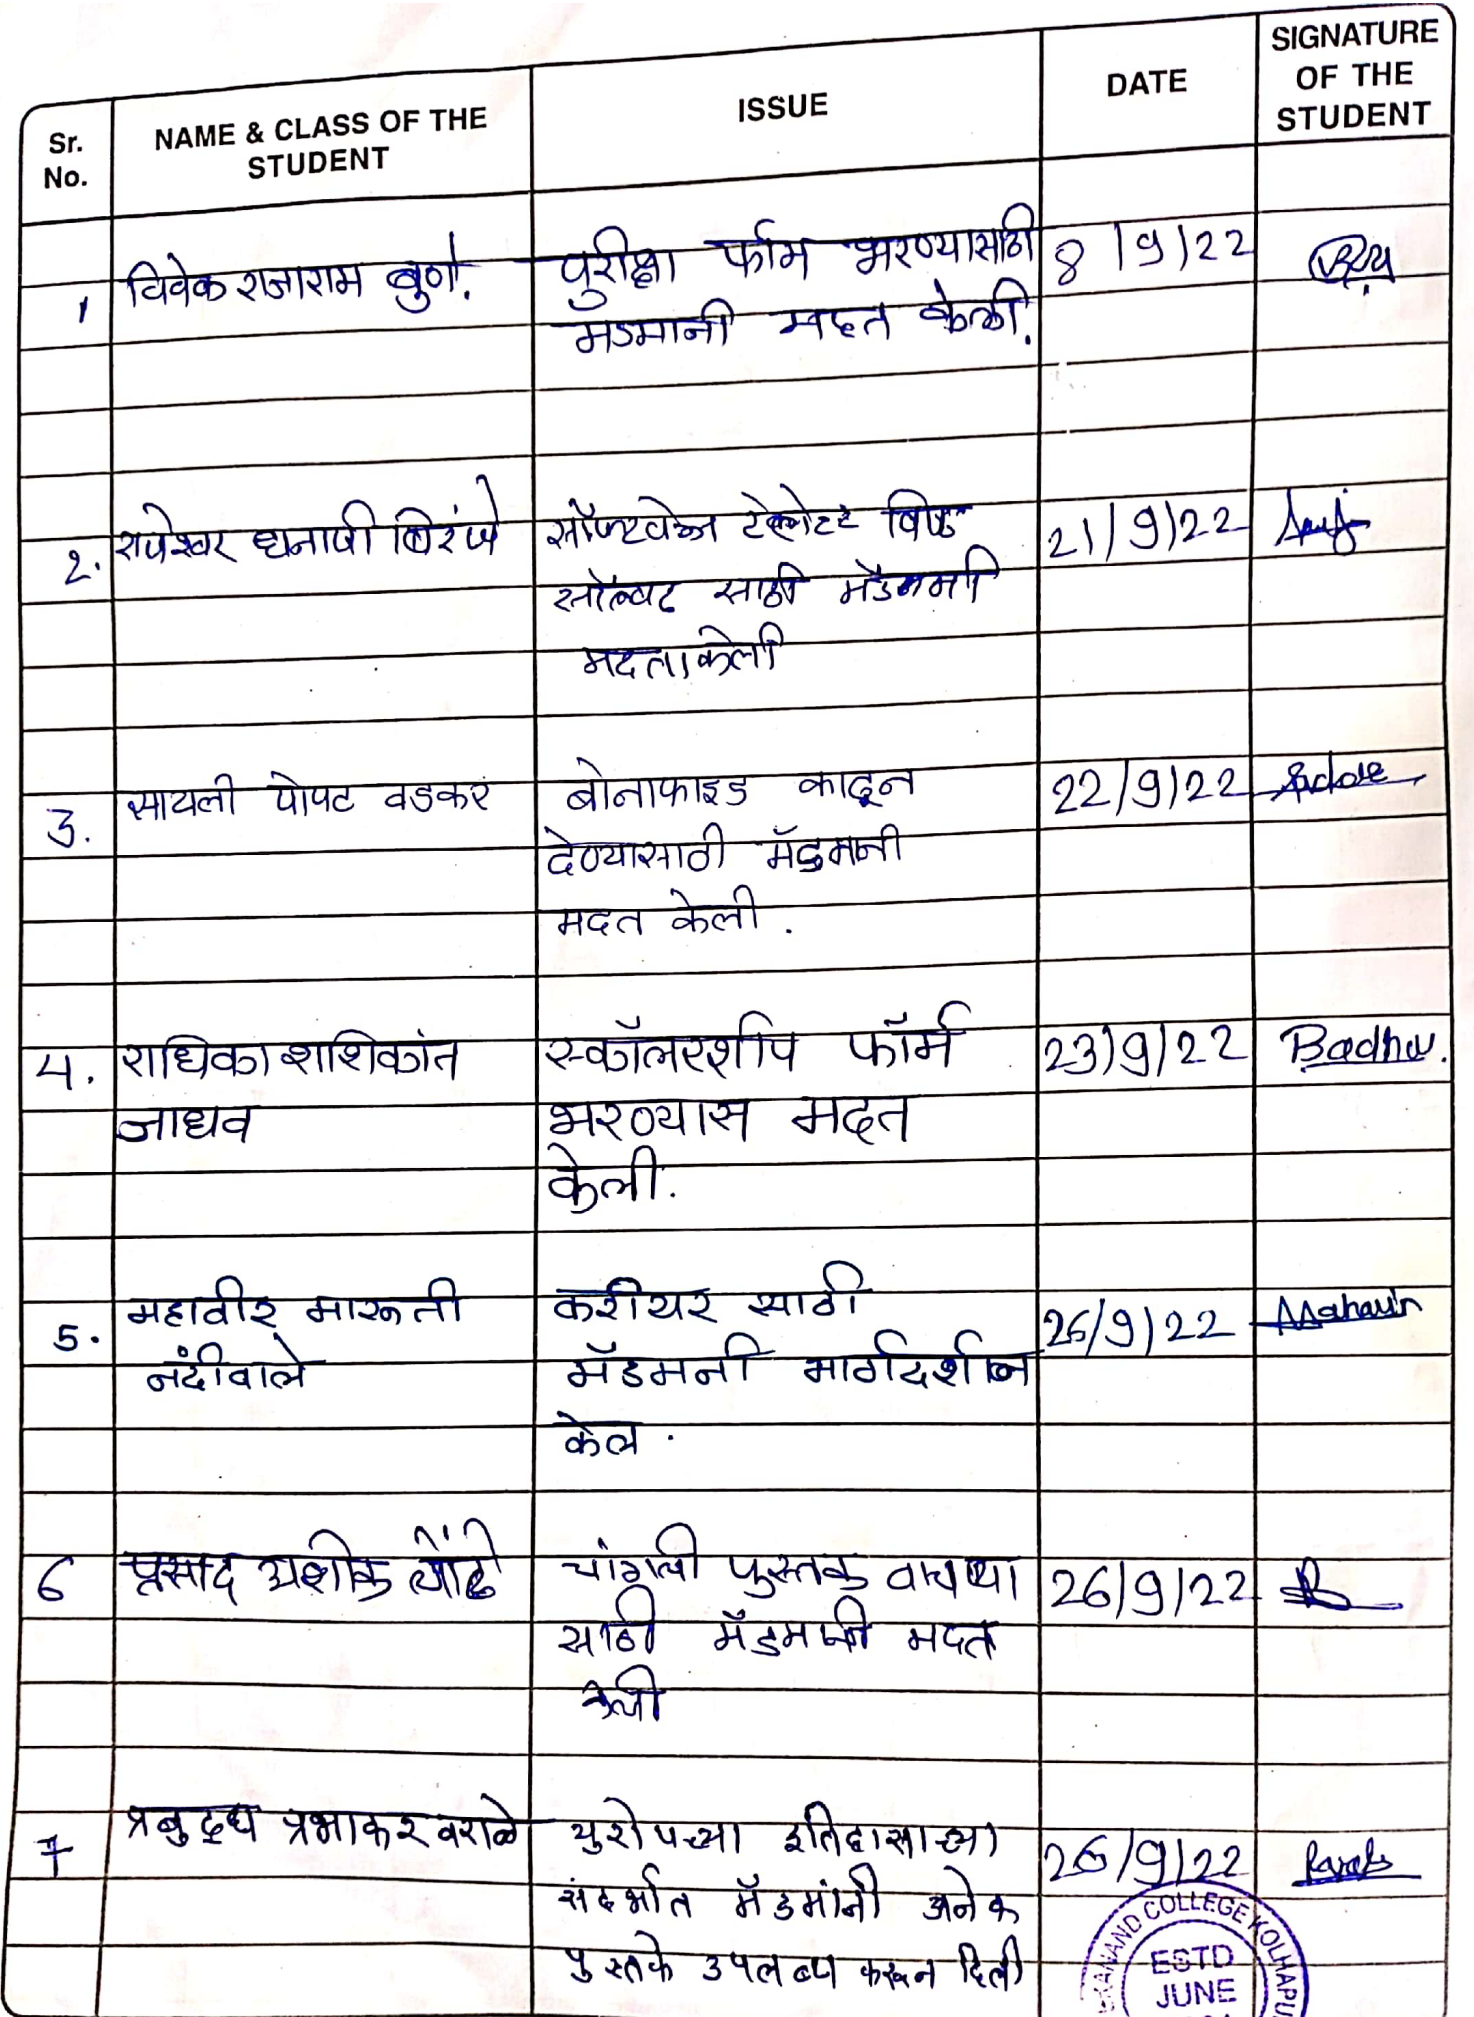 Sr. No.
NAME & CLASS OF THE STUDENT
ISSUE
DATE
SIGNATURE OF THE STUDENT
1
विवेक राजाराम बुगे.
परीक्षा फॉम भरण्यासाठी
मडमानी मदत केली.
8/9/22
2.
राजेश्वर धनाजी बिरंजे
साठी मॅडमनी
मदत केली
21/9/22
3.
सायली पोपट वडकर
बोनाफाइड काढून
देण्यासाठी मॅडमनी
मदत केली.
22/9/22
4.
राधिका शशिकांत
जाधव
स्कॉलरशीप फॉर्म
भरण्यास मदत
केली.
23/9/22
Badhav.
5.
महावीर मारुती
नंदीवाले
करीयर साठी
मॅडमनी मार्गदर्शन
केल.
26/9/22
Mahavir
6
प्रसाद अशोक
चांगली पुस्तक
साठी मॅडमनी मदत
केली
26/9/22
7
प्रबुद्ध प्रभाकर वराळे
युरोपच्या इतिहासाच्या
संदर्भात मॅडमांनी अनेक
पुस्तके उपलब्ध करून दिली
26/9/22
ANAND COLLEGE KOLHAPU
ESTD
JUNE